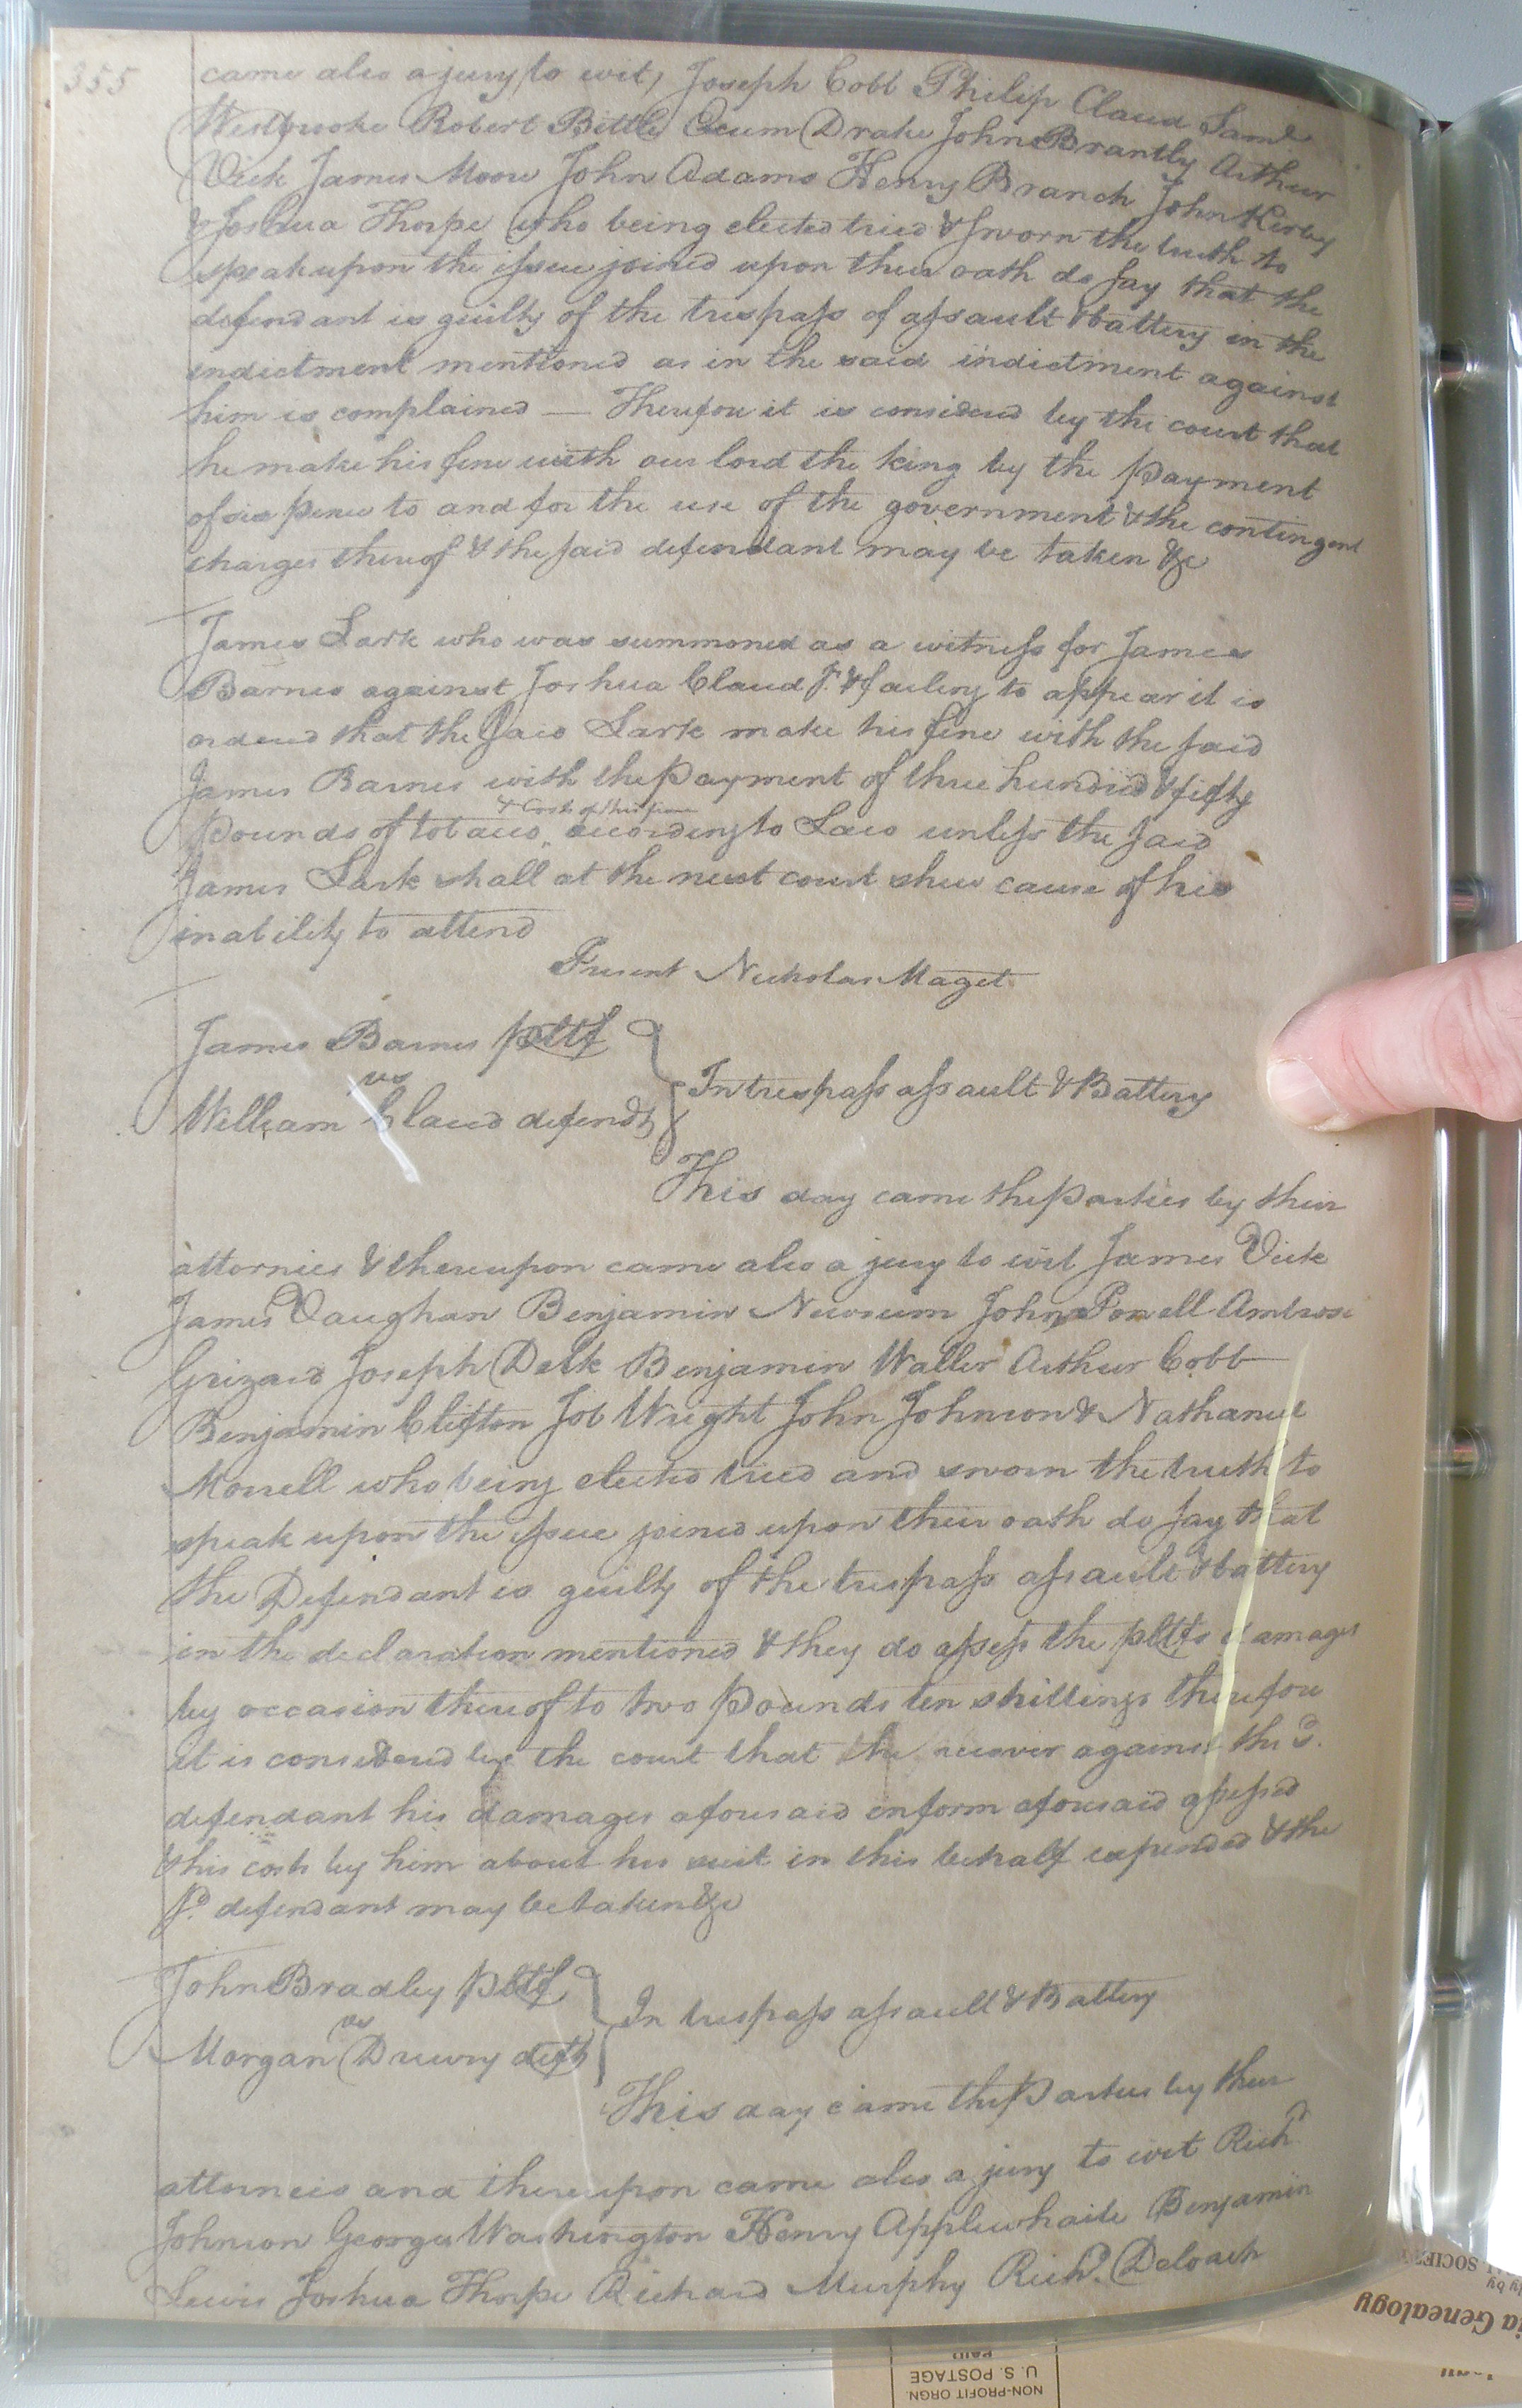 355
came also a jury, to wit, Joseph Cobb Philip Claud Saml.
Westbrooke Robert Bittle Drake John Brantly Arthur
Vick James Moore John Adams Henry Branch John Kirby
& Joshua Thorpe who being elected tried & sworn the truth to
speak upon the issue joined upon their oath do say that the
defendant is guilty of the trespass of assault & battery in the
indictment mentioned as in the said indictment against
him is complained — Therefore it is considered by the court that
he make his fine with our lord the king by the payment
of six pence to and for the use of the government & the contingent
charges thereof & the said defendant may be taken &c
James Lark who was summoned as a witness for James
Barnes against Joshua Claud Jr. & failing to appear it is
ordered that the said Lark make his fine with the said
James Barnes with the payment of three hundred & fifty
& Costs of this fine
pounds of tobacco, according to Law unless the said
James Lark shall at the next court shew cause of his
inability to attend
Present Nicholas Maget
James Barnes pltf
vs
William Claud defendt
In trespass assault & Battery
This day came the parties by their
attornies & thereupon came also a jury to wit James Vick
James Vaughan Benjamin Newsum John Powell Ambrose
Grizard Joseph Delk Benjamin Waller Arthur Cobb
Benjamin Clifton Job Wright John Johnson & Nathaniel
Morrell who being elected tried and sworn the truth to
speak upon the issue joined upon their oath do say that
the Defendant is guilty of the trespass assault & battery
in the declaration mentioned & they do assess the pltfs damages
by occasion thereof to two pounds ten shillings therefore
it is considered by the court that the recover against the sd.
defendant his damages aforesaid in form aforesaid assessed
& his costs by him about his suit in this behalf expended & the
sd. defendant may be taken &c
John Bradley pltf
vs
Morgan Drewry deft
In trespass assault & Battery
This day came the parties by their
attorneis and thereupon came also a jury to wit Richd
Johnson George Washington Henry Applewhaite Benjamin
Lewis Joshua Thorpe Richard Murphy Richd. Deloach
SOCIET
ia Genealogy
U. S. POSTAGE
NON-PROFIT ORGN.